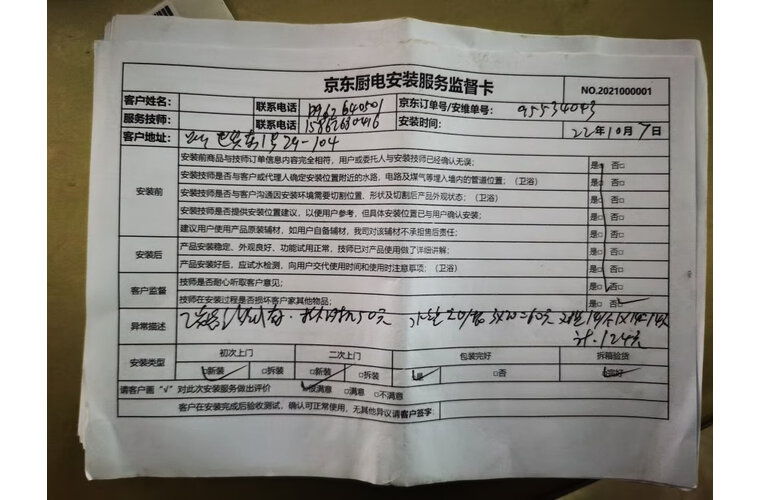 京东厨电安装服务监督卡
NO.2021000001
客户姓名: 联系电话 京东订单号/安维单号: 95534043
服务技师: 联系电话 15862630416 安装时间: 22年10月7日
客户地址: 1号29-104
安装前商品与技师订单信息内容完全相符,用户或委托人与安装技师已经确认无误; 是□ 否□
安装技师是否与客户或代理人确定安装位置附近的水路,电路及煤气等埋入墙内的管道位置;(卫浴) 是□ 否□
安装前 安装技师是否与客户沟通因安装环境需要切割位置、形状及切割后产品外观状态;(卫浴) 是□ 否□
安装技师是否提供安装位置建议,以便用户参考,但具体安装位置已与用户确认安装; 是□ 否□
建议用户使用产品原装辅材,如用户自备辅材,我司对该辅材不承担售后责任; 是□ 否□
安装后 产品安装稳定、外观良好、功能试用正常,技师已对产品使用做了详细讲解; 是□ 否□
产品安装好后,应试水检测,向用户交代使用时间和使用时注意事项;(卫浴) 是□ 否□
客户监督 技师是否耐心听取客户意见; 是□ 否□
技师在安装过程是否损坏客户家其他物品; 是□ 否□
异常描述 50元 3X20=60元
计.124元
安装类型 初次上门 二次上门 包装完好 拆箱验货
□新装 □拆装 □新装 □拆装 □是 □否 □完好
请客户画“√”对此次安装服务做出评价 □很满意 □满意 □不满意
客户在安装完成后验收测试,确认可正常使用,无其他异议请客户签字: